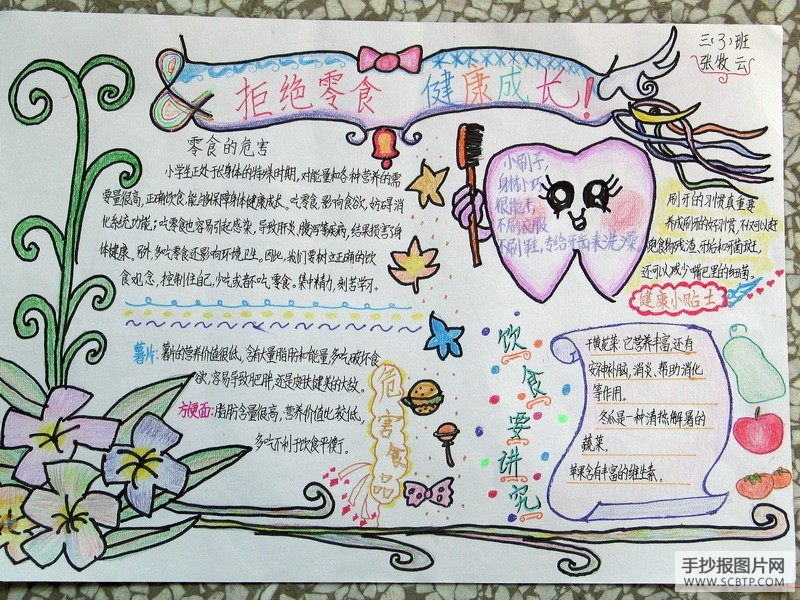 三(3)班
张牧云
拒绝零食 健康成长!
零食的危害
小学生正处于长身体的特殊时期,对能量和各种营养的需
要量很高,正确饮食,能够保障身体健康成长。吃零食,影响食欲,妨碍消
化系统功能;吃零食也容易引起感染,导致肝炎、腹泻等疾病,结果损害身
体健康。另外,多吃零食还影响环境卫生。因此,我们要树立正确的饮
食观念,控制住自己,少吃或者不吃零食。集中精力,刻苦学习。
薯片:薯片的营养价值很低,含有大量脂肪和能量,多吃破坏食
欲,容易导致肥胖,还是皮肤健美的大敌。
方便面:脂肪含量很高,营养价值比较低,
多吃不利于饮食平衡。
危害食品
小刷子,
身材小巧
很能干,
不刷衣服
不刷鞋,专给牙齿来洗澡
刷牙的习惯真重要
养成刷牙的好习惯,不仅可以赶
跑食物残渣、牙垢和牙菌斑,
还可以减少嘴巴里的细菌。
健康小贴士
饮食要讲究
干黄花菜:它营养丰富,还有
安神补脑,消炎、帮助消化
等作用。
冬瓜是一种清热解暑的
蔬菜。
苹果含有丰富的维生素。
手抄报图片网
WWW.SCBTP.COM